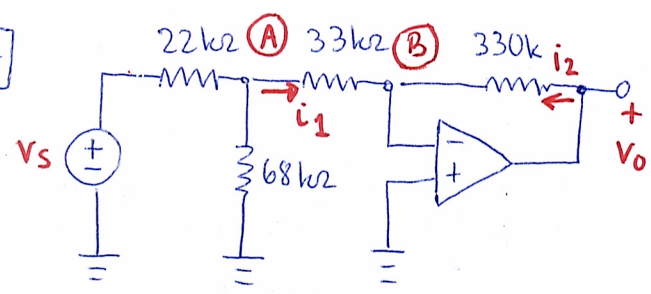 22kΩ A 33kΩ B 330k i2
i1
Vs + -
68kΩ
- +
+
Vo